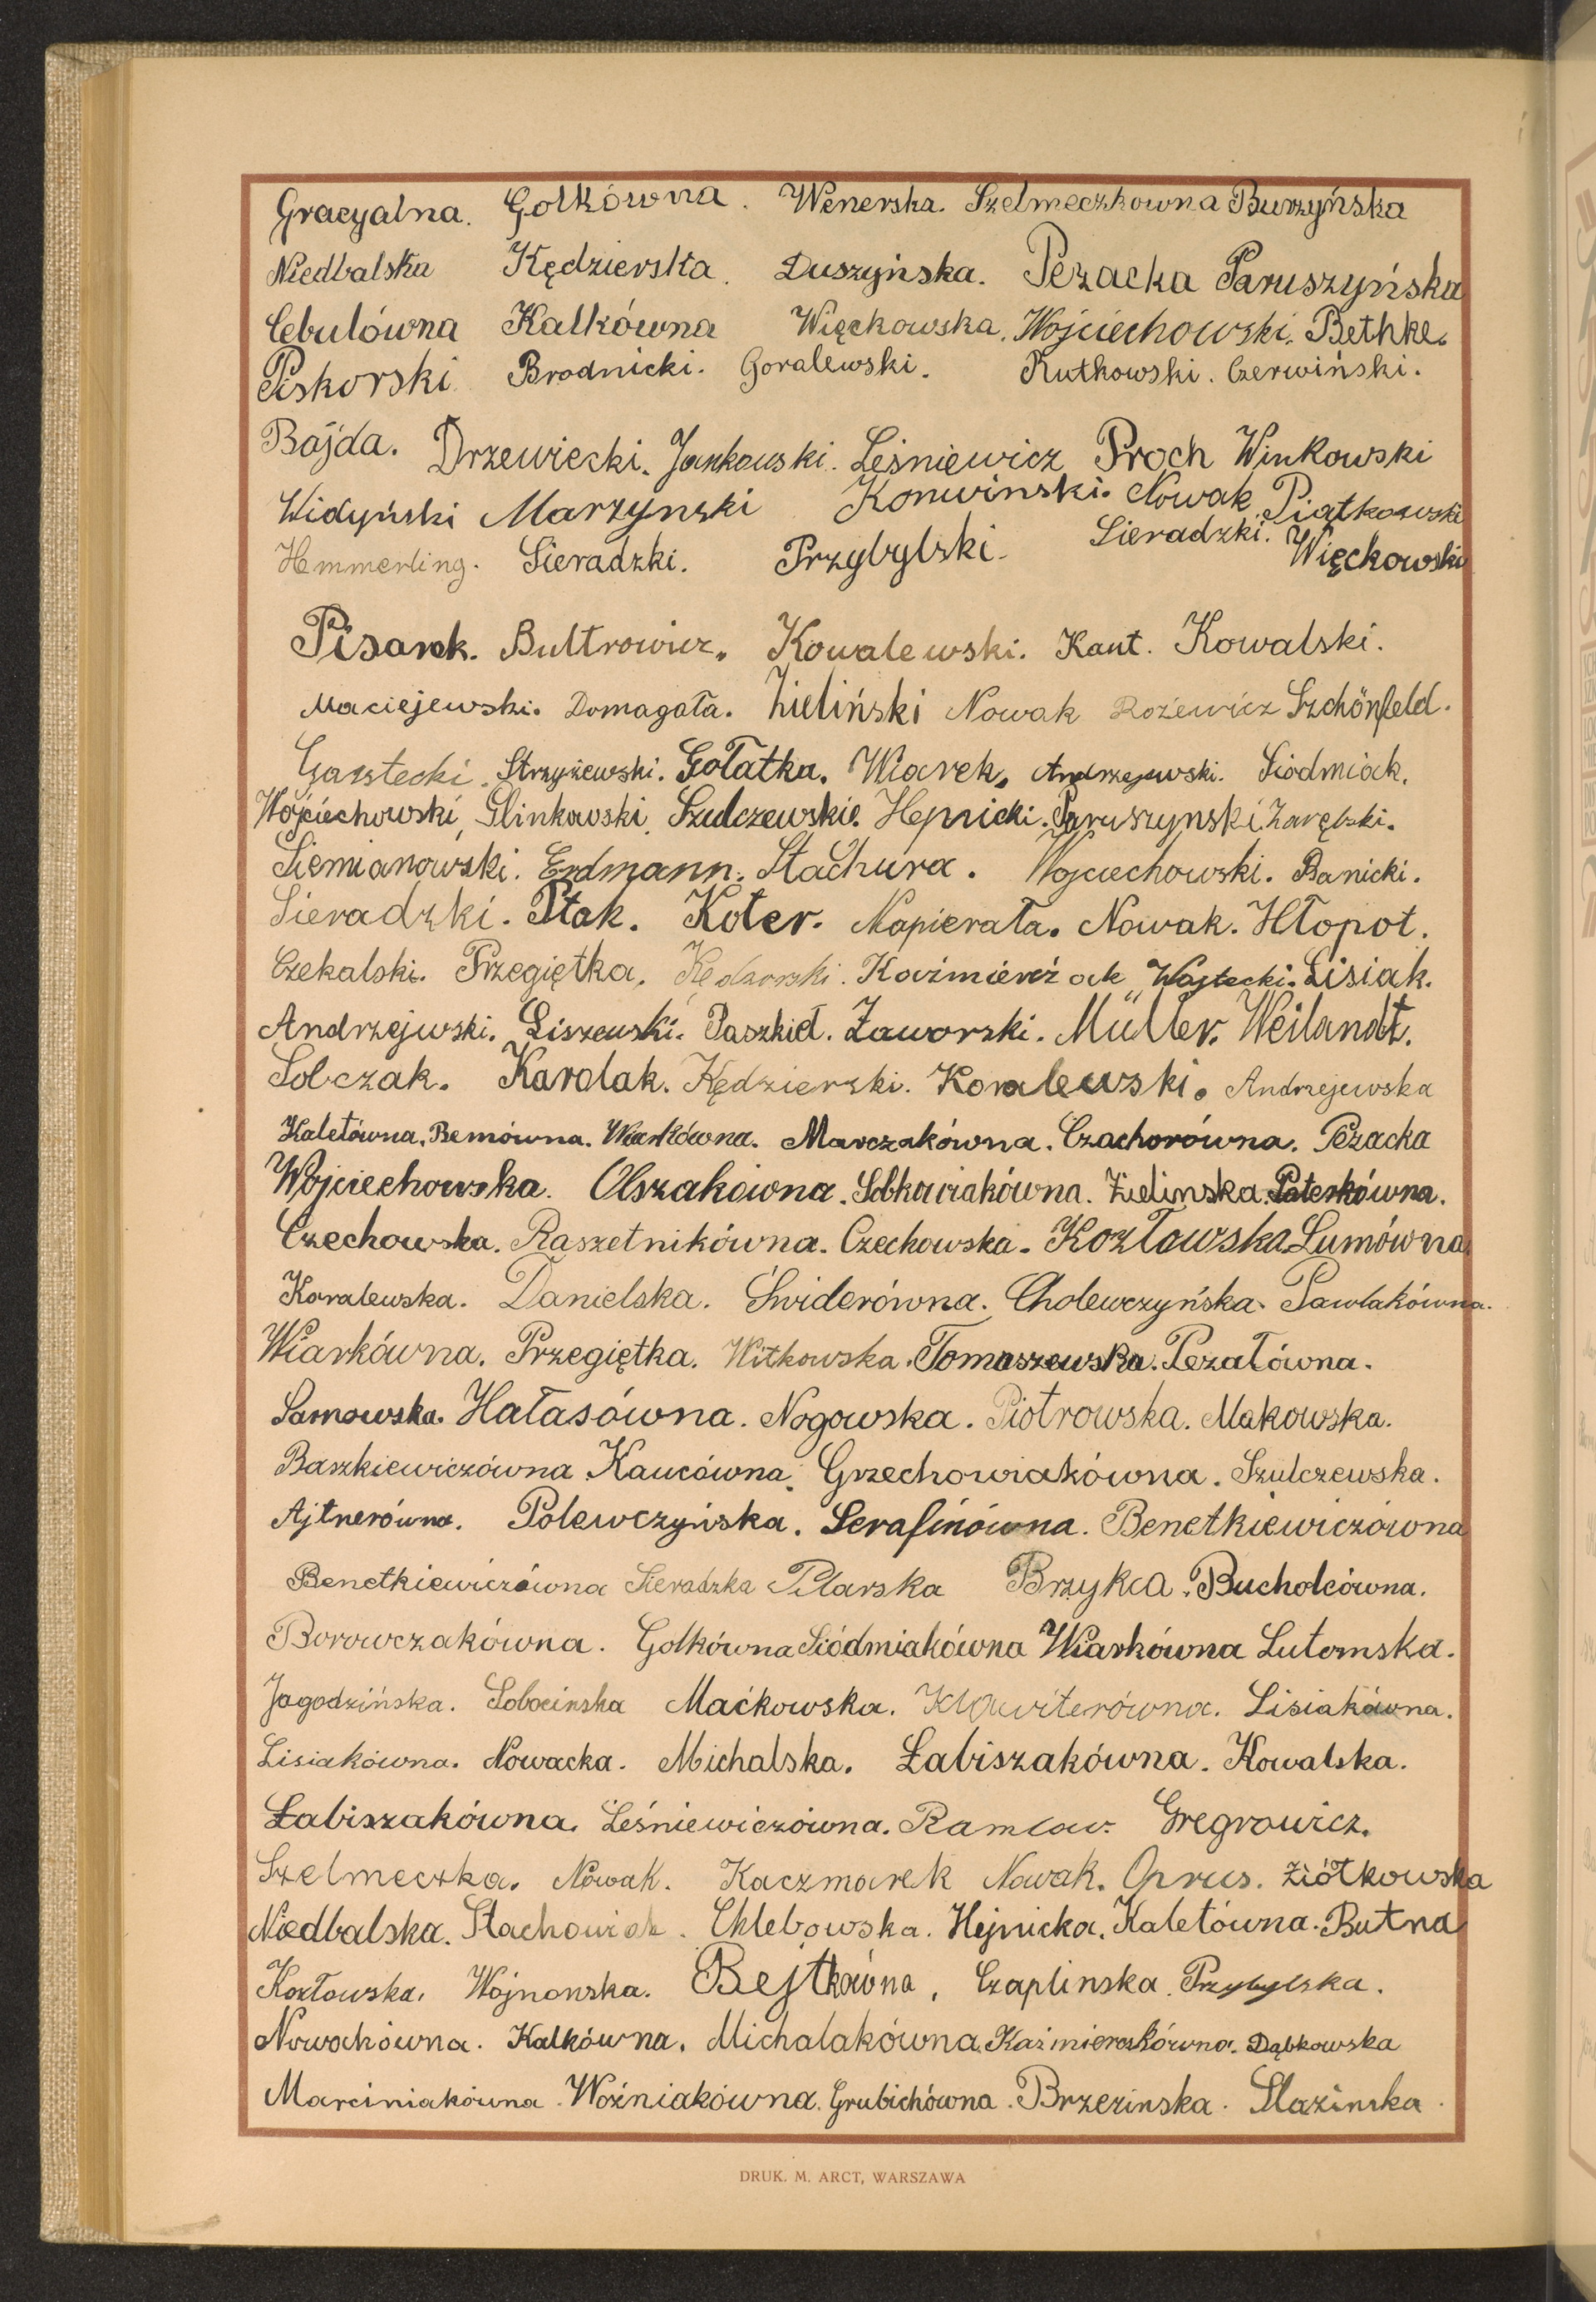 Gracyalna. Golkówna. Wenerska. Szelmeczkowna Burzyńska
Niedbalska Kędzierska. Duszyńska. Pezacka Paruszyńska
Cebulówna Kalkówna Więckowska. Wojciechowski. Bethke.
Piskorski Brodnicki. Goralewski. Rutkowski. Czerwiński.
Bajda. Drzewiecki. Jankowski. Leśniewicz Proch Winkowski
Widyński Marzynski Konwinski. Nowak Piątkowski
Hemmerling. Sieradzki. Przybylski. Sieradzki. Więckowski
Pisarek. Bultrowicz. Kowalewski. Kant. Kowalski.
Maciejewski. Domagała. Zieliński Nowak Rożewicz Szchönfeld.
Gasstecki. Strzyżewski. Gołatka. Wiarek. Andrzejewski. Siodmiak.
Wojciechowski, Glinkowski, Szulczewskie. Hejnicki. Paruszynski. Zarębski.
Siemianowski. Erdmann. Stachura. Wojciechowski. Banicki.
Sieradzki. Ptak. Koter. Napierała. Nowak. Hłopot.
Czekalski. Przegiętka. Kaźmierczak Wojtecki. Lisiak.
Andrzejwski. Liszewski. Paszkiet. Zaworski. Müller. Weilandt.
Sobczak. Karolak. Kędzierski. Koralewski. Andrzejewska
Kaletówna. Bemówna. Wiarkówna. Marczakówna. Czachorówna. Pezacka
Wojciechowska. Olszakówna. Sobkowiakówna. Zielinska. Paterkówna.
Czechowska. Raszetnikówna. Czechowska. Kozłowska Lumówna.
Koralewska. Danielska. Świderówna. Cholewczyńska. Pawlakówna.
Wiarkówna. Przegiętka. Witkowska. Tomaszewska. Pezałówna.
Sarnowska. Hałasówna. Nogowska. Piotrowska. Makowska.
Baszkiewiczówna Kaucówna. Grzechowiakówna. Szulczewska.
Ajtnerówna. Polewczyńska. Serafinówna. Benetkiewiczówna
Benetkiewiczówna Sieradzka Pilarska Brzykca. Bucholcówna.
Borowczakówna. Golkówna Siódmiakówna Wiarkówna Lutomska.
Jagodzińska. Sobocinska Maćkowska. Klawiterówna. Lisiakówna.
Lisiakówna. Nowacka. Michalska. Łabiszakówna. Kowalska.
Łabiszakówna. Leśniewiczówna. Ramlow. Gregrowicz.
Szelmeczka. Nowak. Kaczmarek Nowak. Oprus. Ziółkowska
Niedbalska. Stachowiak. Chlebowska. Hejnicka. Kaletówna. Butna
Kozłowska. Wojnowska. Bejtkówna, Czaplinska. Przybylska.
Nowakówna. Kalkówna. Michalakówna. Kaźmierczkówna. Dąbkowska
Marciniakówna. Woźniakówna. Grubichówna. Brzezinska. Slazinska.
DRUK. M. ARCT, WARSZAWA